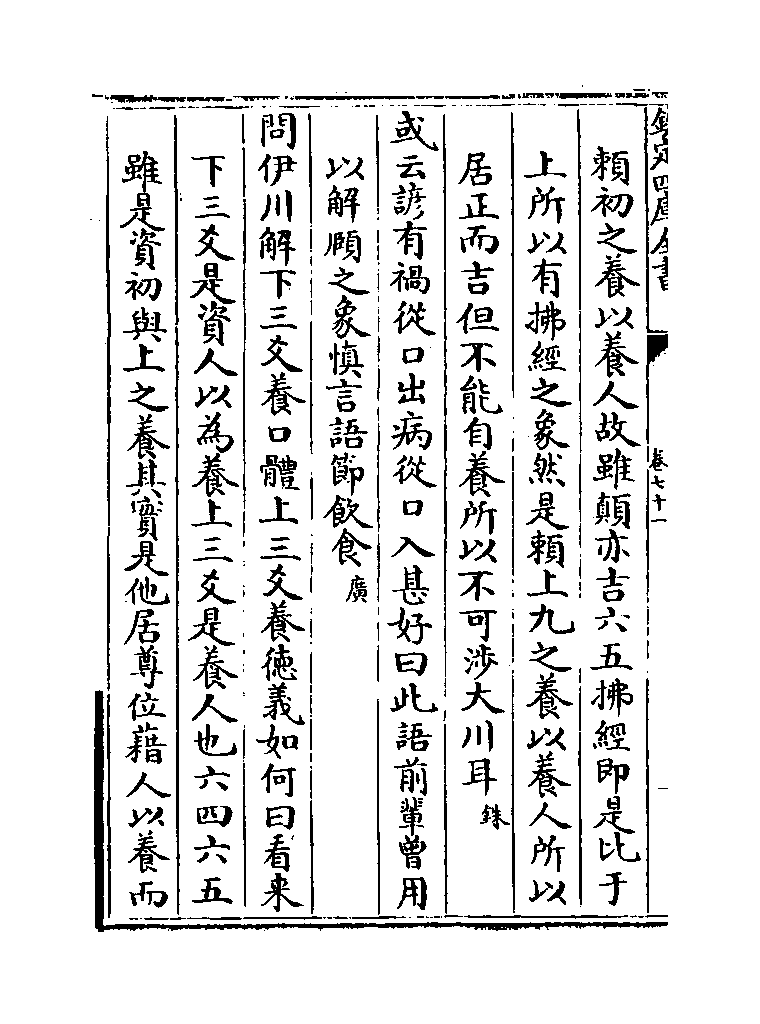 欽定四庫全書
卷七十一
賴初之養以養人故雖顛亦吉六五拂經即是比于
上所以有拂經之象然是賴上九之養以養人所以
居正而吉但不能自養所以不可涉大川耳銖
或云諺有禍從口出病從口入甚好曰此語前輩曽用
以解頤之象慎言語節飲食廣
問伊川解下三爻養口體上三爻養徳義如何曰看来
下三爻是資人以為養上三爻是養人也六四六五
雖是資初與上之養其實是他居尊位藉人以養而